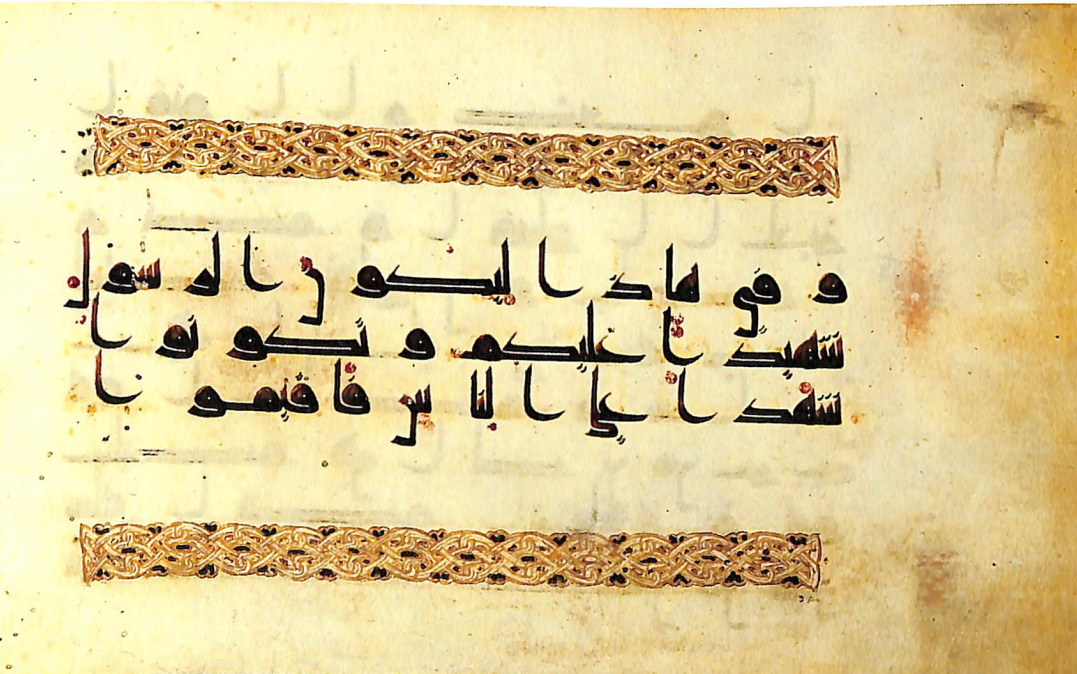 و في هذا ليكو ن الر سول
شهيدا عليكم و تكو نوا
شهدا على النا س فاقيموا